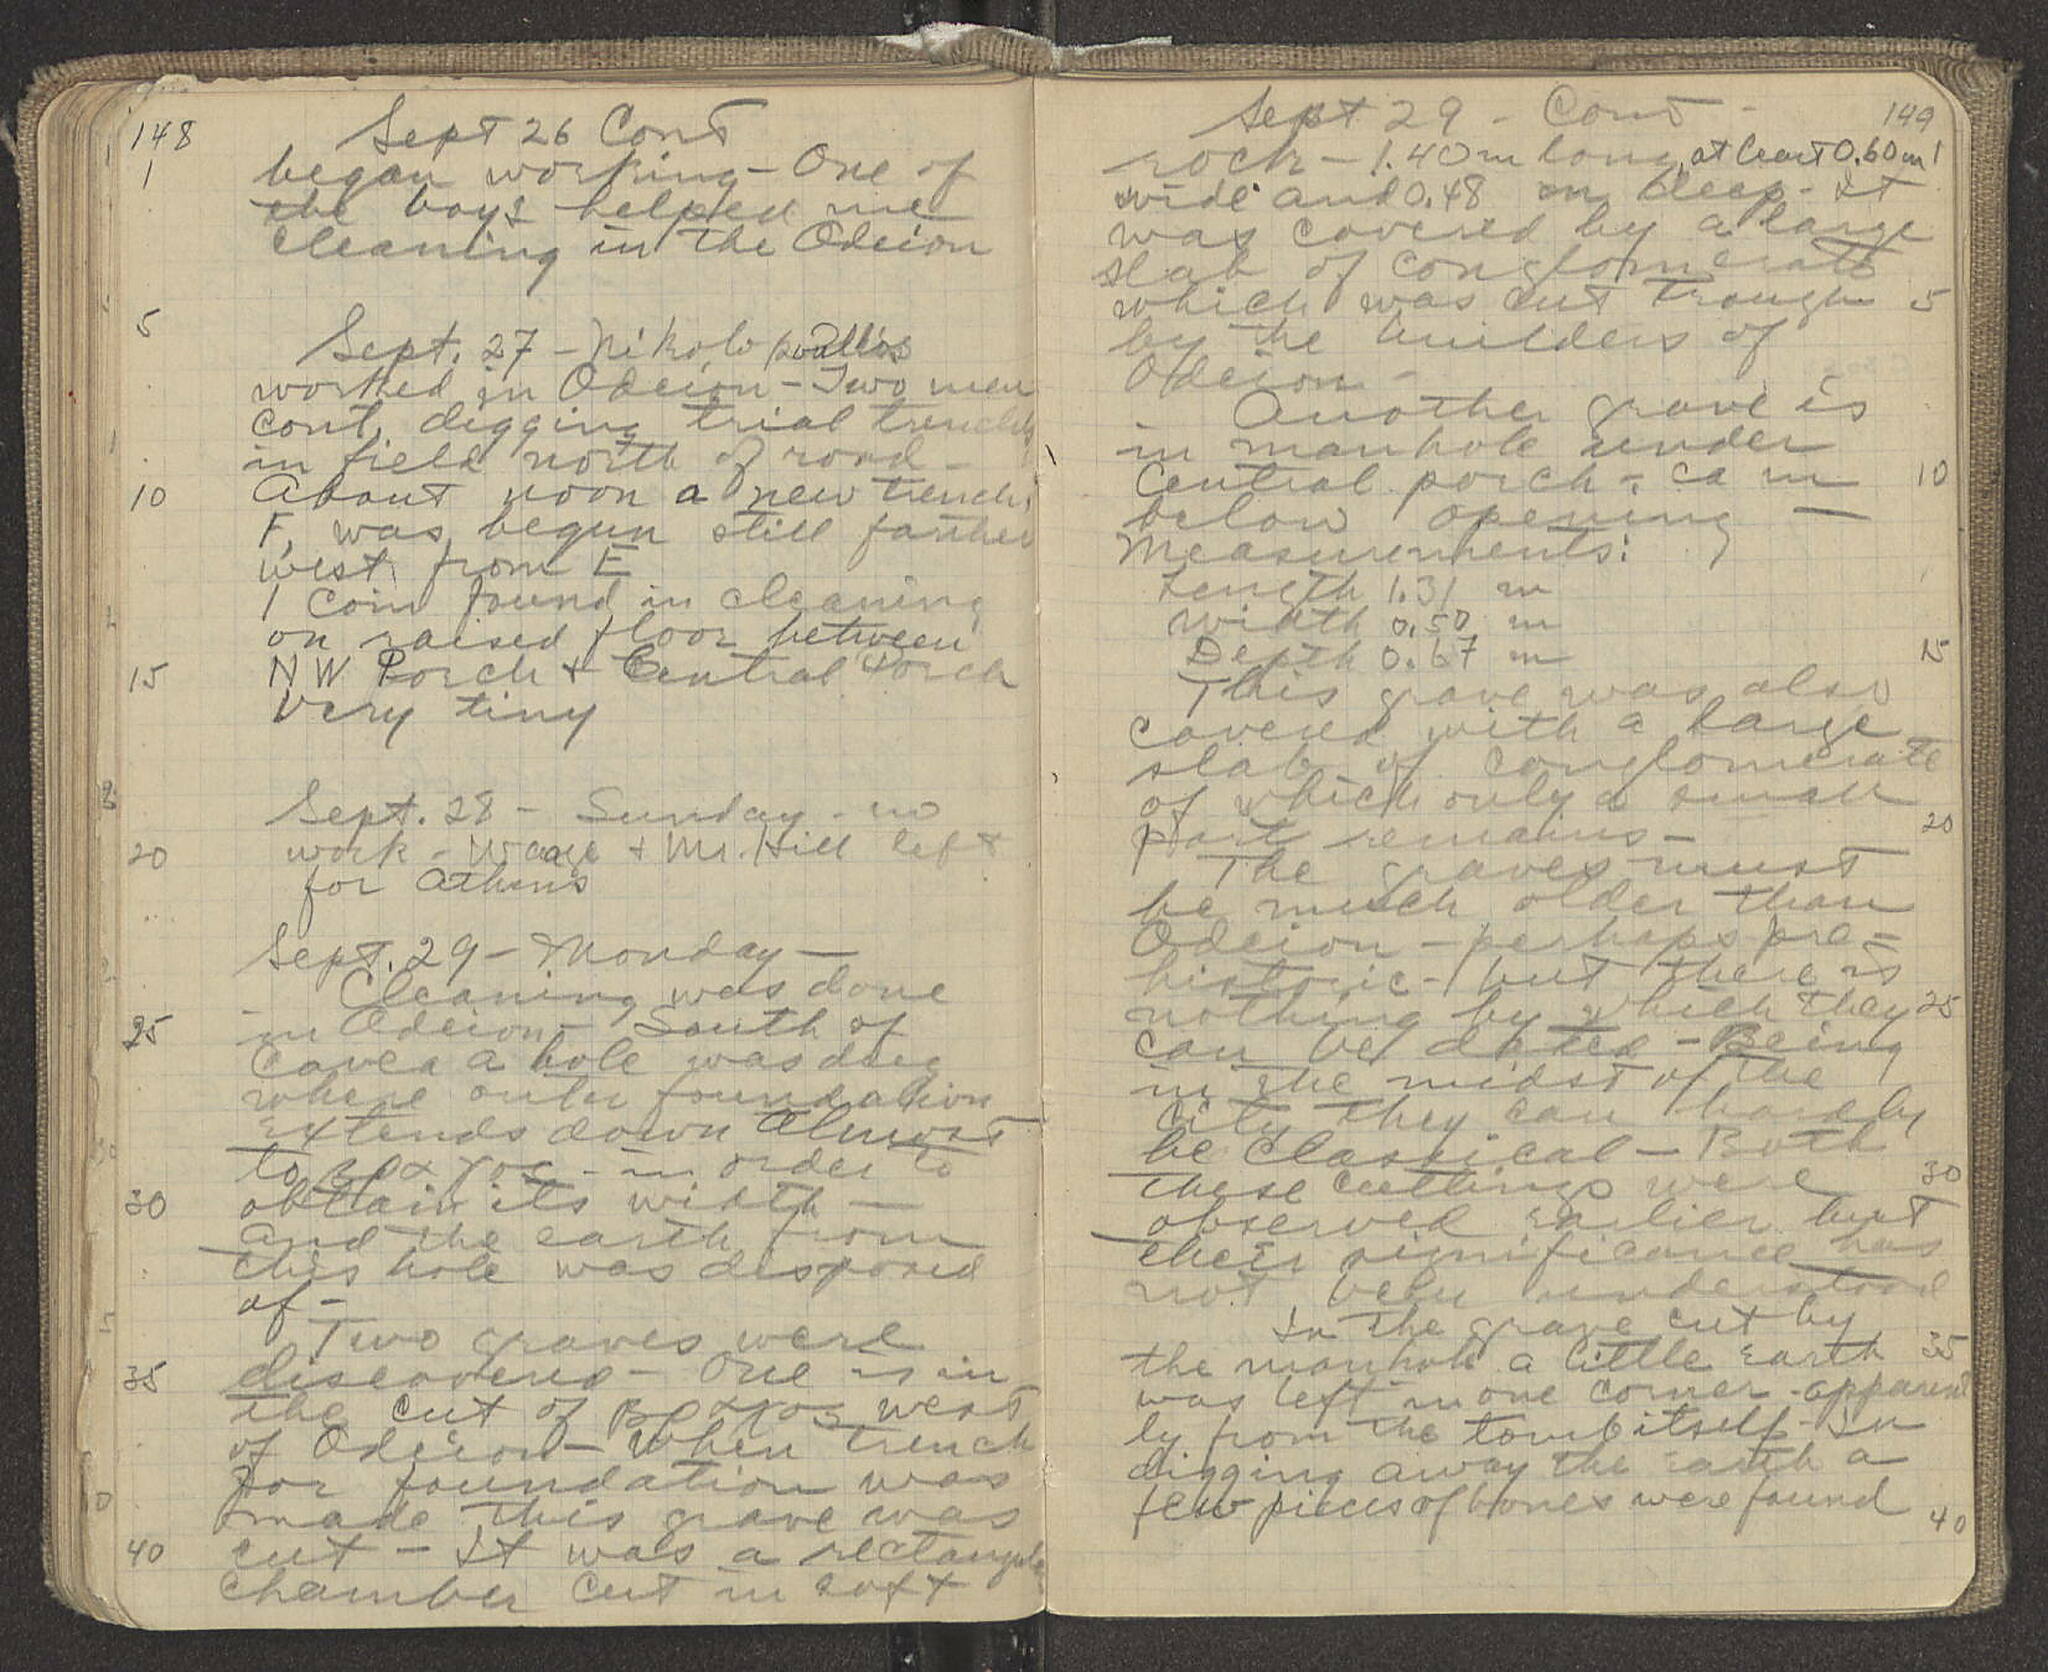 148
Sept 26 Cont
1 began working - One of
the boys helped me
cleaning in the Odeion
5
Sept. 27 -
worked in Odeion - Two men
cont. digging trial trenches
in field north of road -
10 About noon a new trench,
F, was begun still farther
west from E
1 coin found in cleaning
on raised floor between
15 NW Porch + Central Porch
Very tiny
Sept. 28 - Sunday - no
20 work - Waage + Mr. Hill left
for Athens
Sept. 29 - Monday -
Cleaning was done
25 in Odeion - South of
Cavea a hole was dug
where outer foundation
extends down almost
to βραχος - in order to
30 obtain its width -
and the earth from
this hole was disposed
of -
Two graves were
35 discovered - One is in
the cut of βραχος west
of Odeion - When trench
for foundation was
made this grave was
40 cut - It was a rectangular
chamber cut in soft
149
Sept 29 - Cont -
rock - 1.40 m long, at least 0.60 m 1
wide and 0.48 m deep - It
was covered by a large
slab of conglomerate
which was cut trough 5
by the builders of
Odeion -
Another grave is
in manhole under
Central porch - ca m 10
below opening -
Measurements:
Length 1.31 m
Width 0.50 m
Depth 0.67 m 15
This grave was also
covered with a large
slab of conglomerate
of which only a small
part remains - 20
The graves must
be much older than
Odeion - perhaps pre-
historic - but there is
nothing by which they 25
can be dated - Being
in the midst of the
City they can hardly
be Classical - Both
these cuttings were 30
observed earlier but
their significance has
not been understood
In the grave cut by
the manhole a little earth 35
was left in one corner - apparent
ly from the tomb itself - In
digging away the earth a
few pieces of bones were found
40